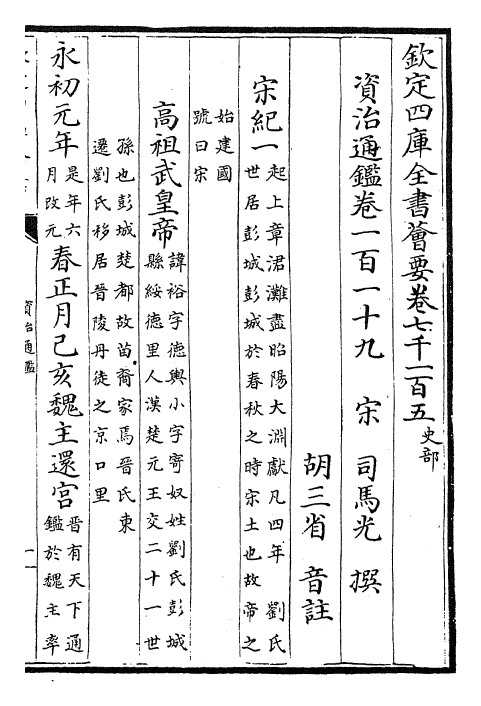 欽定四庫全書薈要卷七千一百五 史部
資治通鑑卷一百一十九 宋 司馬光 撰
胡三省 音註
宋紀一 起上章涒灘盡昭陽大淵獻凡四年 劉氏
世居彭城彭城於春秋之時宋土也故帝之
始建國
號曰宋
高祖武皇帝 諱裕字德輿小字寄奴姓劉氏彭城
縣綏德里人漢楚元王交二十一世
孫也彭城楚都故苗裔家焉晉氏東
遷劉氏移居晉陵丹徒之京口里
永初元年 是年六
月改元
春正月己亥魏主還宮 晉有天下通
鑑於魏主率
資治通鑑
一